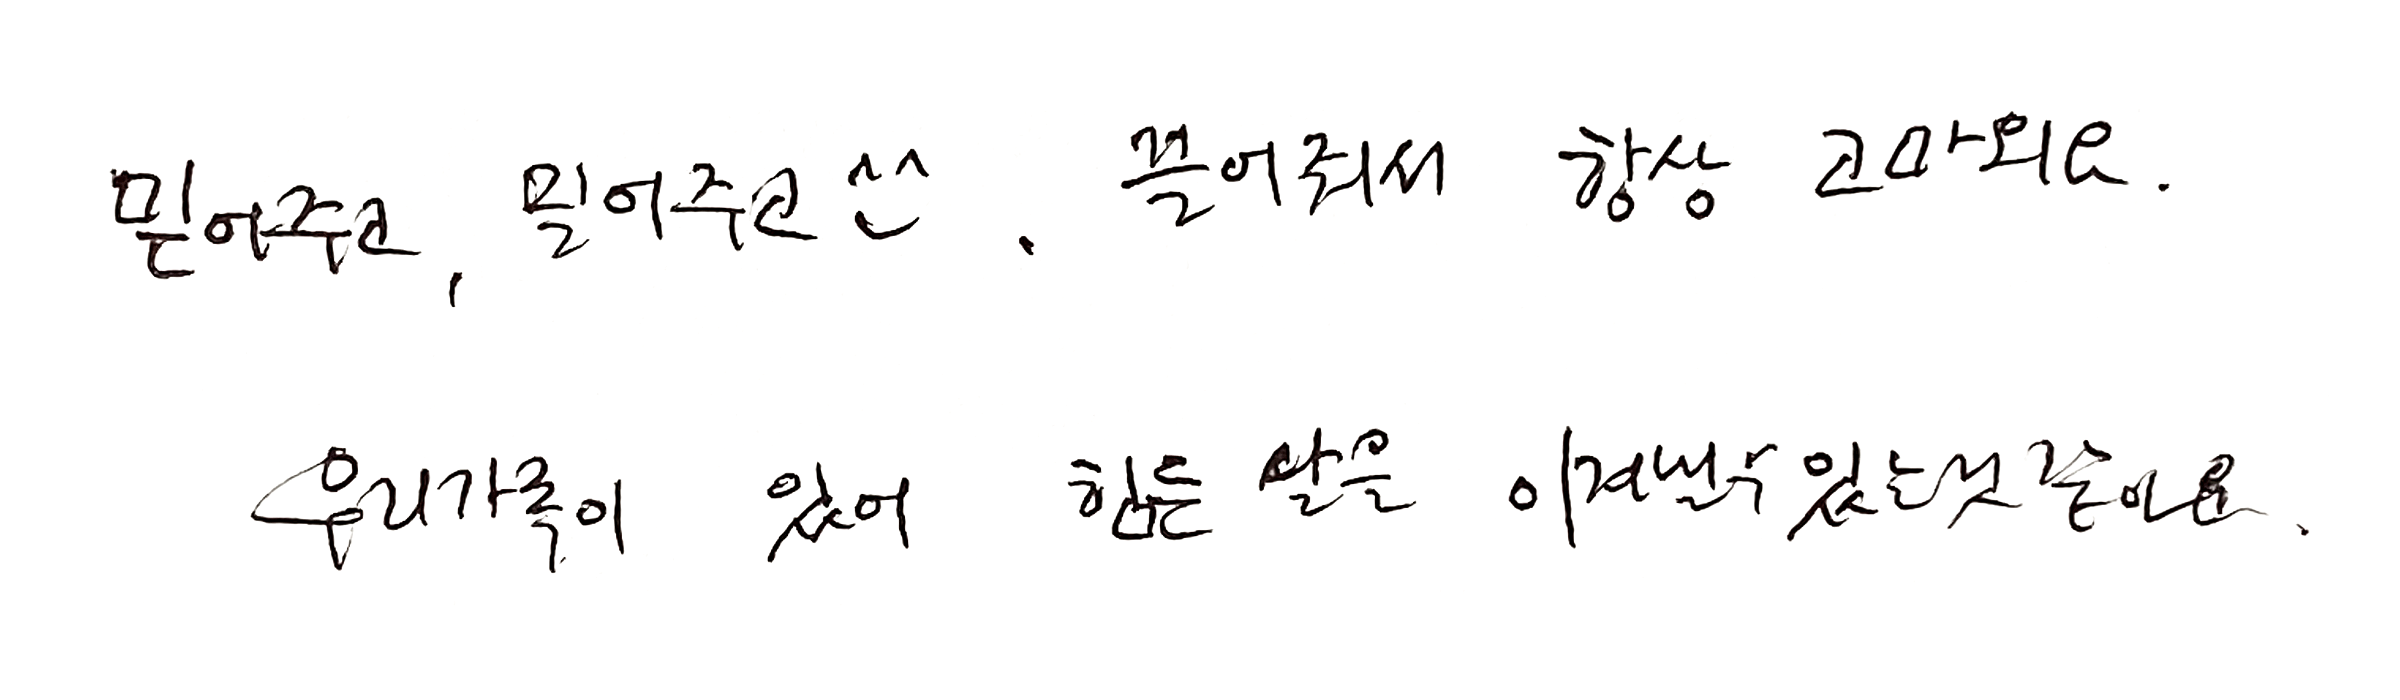 믿어주고, 밀어주고 ^^. 끌어줘서 항상 고마워요.
우리가족이 있어 힘든 날을 이겨낼수 있는것 같아요.